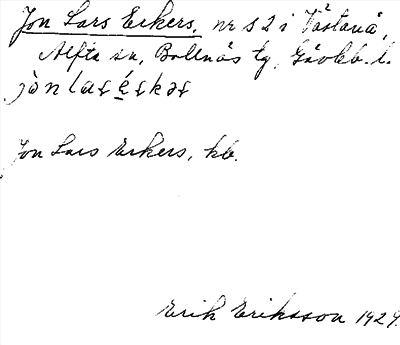 Jon Lars Eckers, nr 52 i Västanå,
Alfta sn, Bollnäs tg, Gävleb. l.
Jon Lars Erkers, kb.
Erik Eriksson 1929.